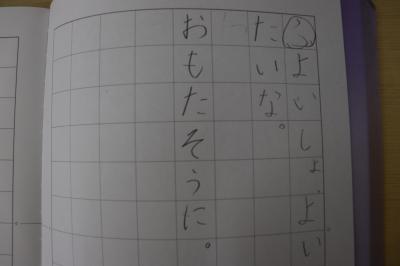 よいしょ、よい
たいな。
おもたそうに。